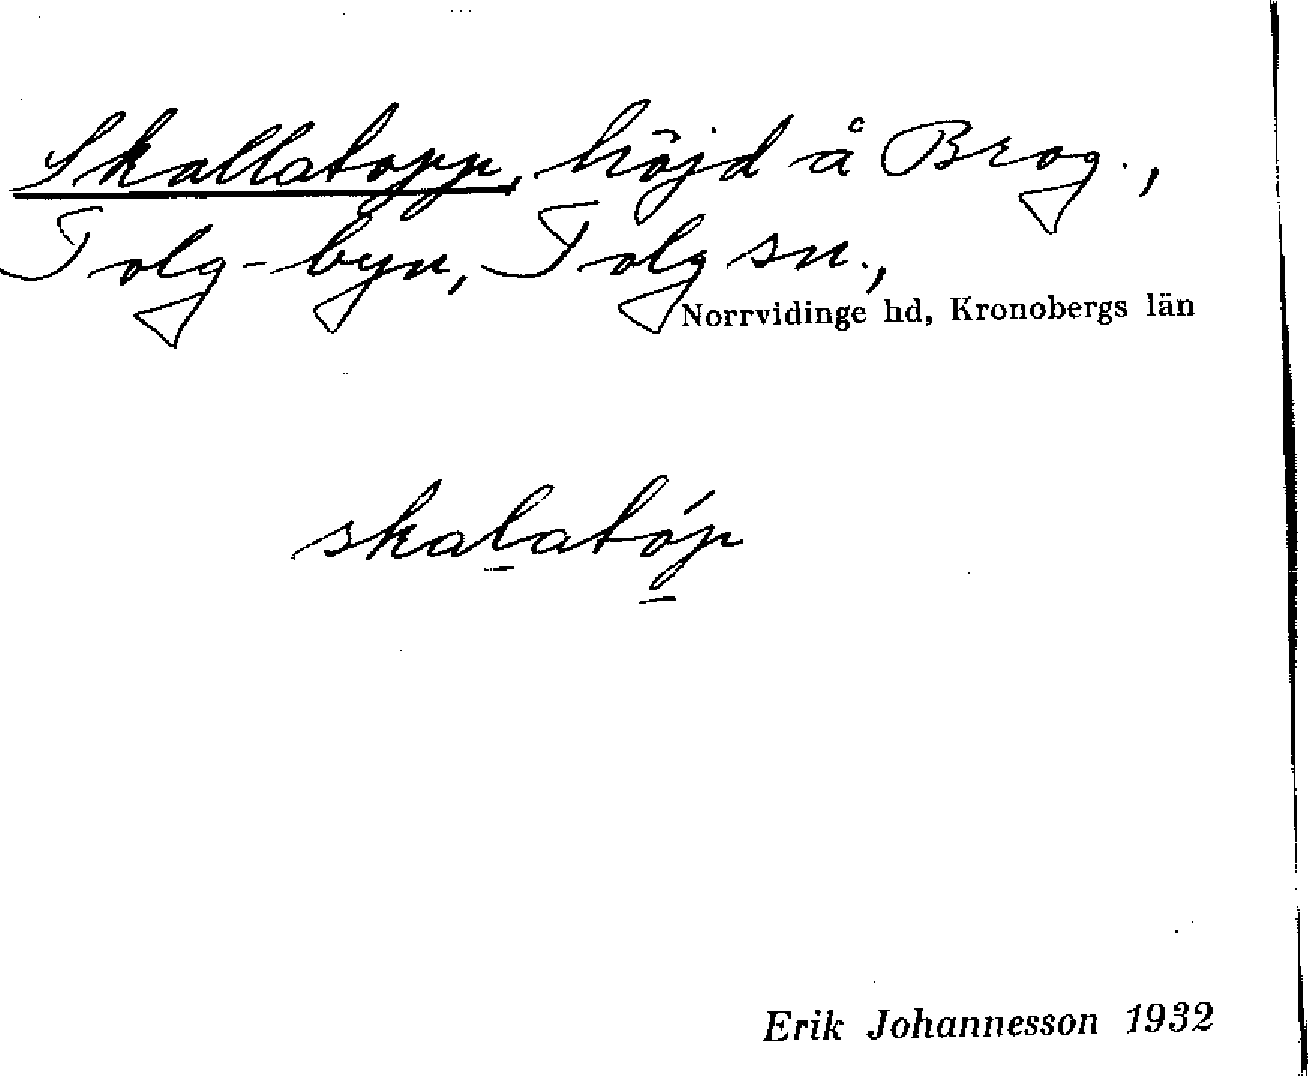 Skallatopp, höjd å Brog.,
Tolg-byn, Tolg sn.,
Norrvidinge hd, Kronobergs län
skalatóp
Erik Johannesson 1932